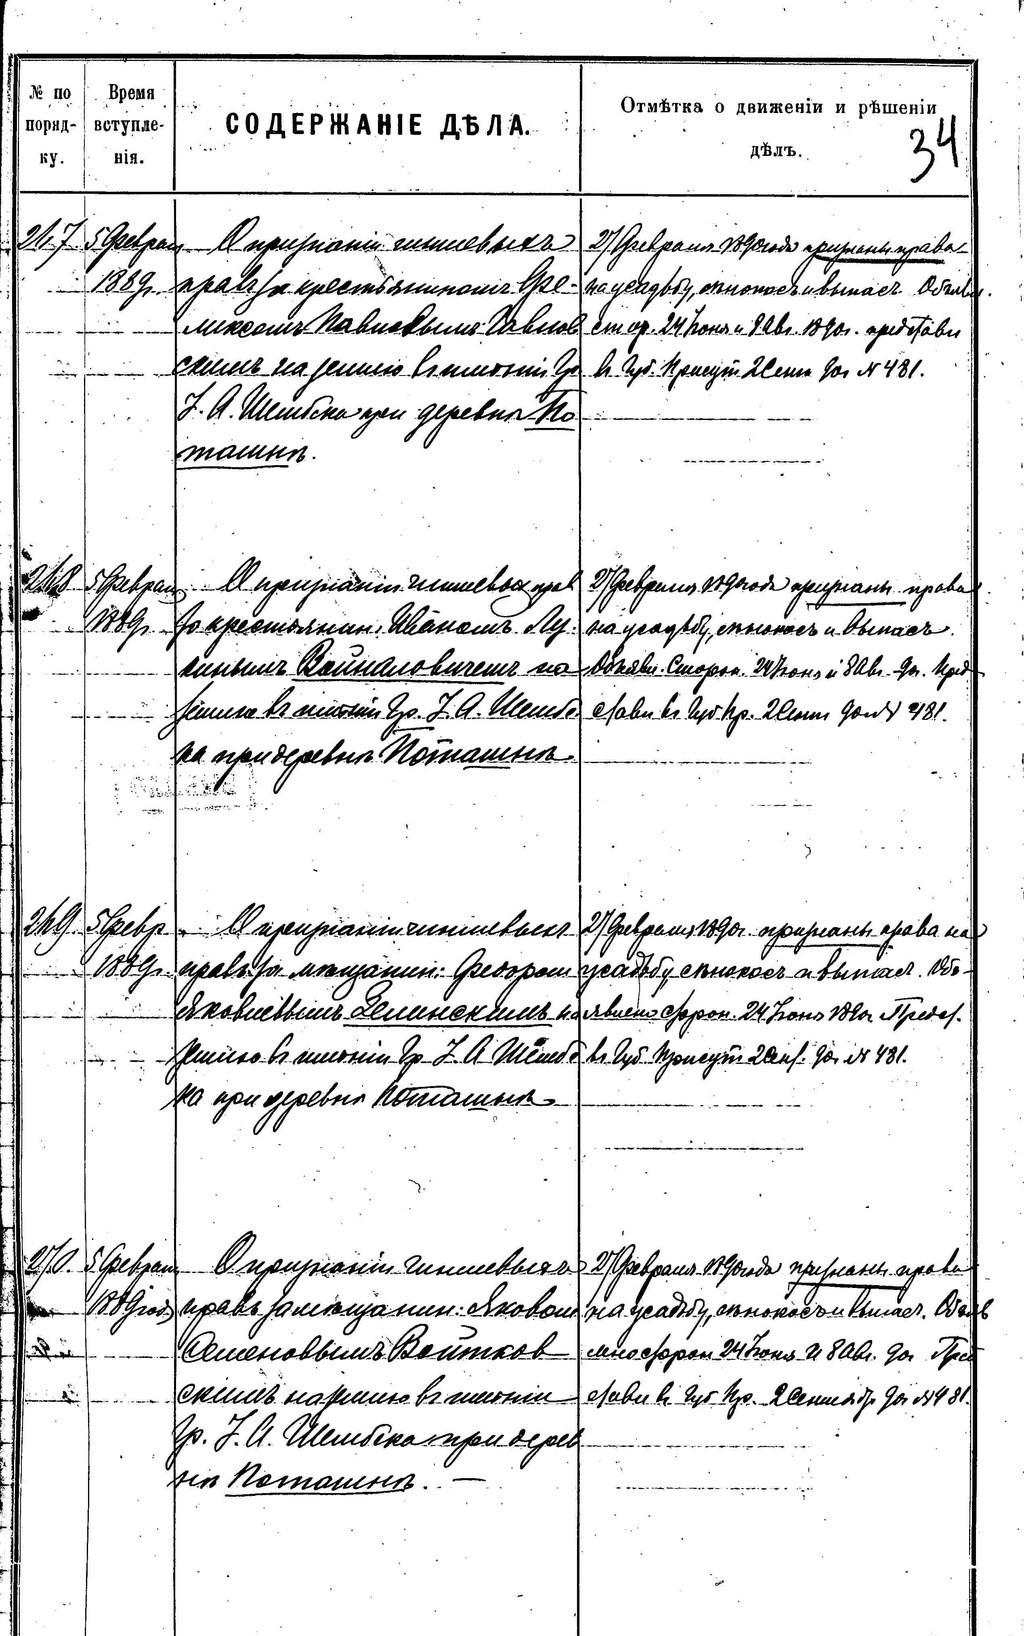 № по порядку.
Время вступленія.
СОДЕРЖАНІЕ ДѢЛА.
Отмѣтка о движеніи и рѣшеніи дѣлъ.
34
217
5 Феврал
1889г.
О признаніи чиншевыхъ
правъ за крестьяниномъ
Павловымъ
скимъ на землю въ имѣніи Гр
І. А. Шембека при деревнѣ По
ташнѣ.
27 Февраля 1890 года признаны права
на усадьбу, сѣнокосъ и выпасъ. Объявл.
стор. 24 Іюня и 8 Авг. 1890г. представл
въ Губ. Присут 2 Сент 90г № 481.
218
5 Феврал
1889г.
О признаніи чиншевых прав
за крестьянин. Иваномъ Лу
кинымъ Войналовичемъ на
землю въ имѣніи Гр. І. А. Шембе
ка при деревнѣ Поташнѣ.
27 Февраля 1890 года признаны права
на усадьбу, сѣнокосъ и выпасъ.
Объявл. Сторон. 24 Іюня и 8 Авг. 90г. Пред
ставл въ Губ Пр. 2 Сент 90г № 481.
219
5 Февр
1889г.
О признаніи чиншевыхъ
правъ за мѣщанин: Федоромъ
Яковлевымъ на
землю въ имѣніи Гр І. А Шембе
ка при деревнѣ Поташнѣ.
27 Февраля 1890г признаны права на
усадьбу, сѣнокосъ и выпасъ. Объ
явлено сторон. 24 Іюня 1890г. Предст.
въ Губ Присут 2 Сент. 90г № 481.
5 Феврал
1889 года
О признаніи чиншевыхъ
правъ за мѣщанин: Яковомъ
Семеновымъ Войтков
скимъ на землю въ имѣніи
Гр. І. А. Шембека при дерев
нѣ Поташнѣ.
27 Февраля 1890 года признаны права
на усадьбу, сѣнокосъ и выпасъ. Объяв
лено сторон 24 Іюня и 8 Авг. 90г Пред
ставл въ Губ Пр. 2 Сентябр 90г № 481.